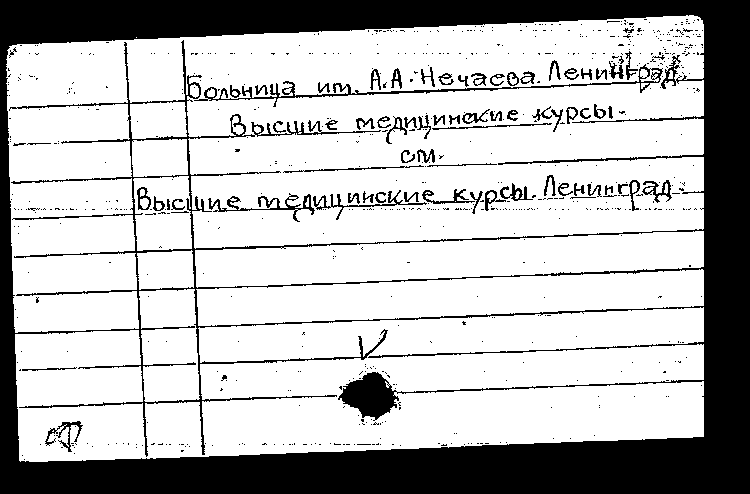 Больница им. А.А. Нечаева. Ленинград
Высшие медицинские курсы.
см.
Высшие медицинские курсы. Ленинград.